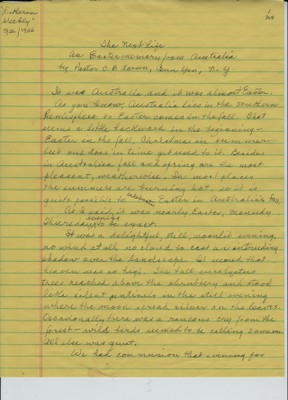 Lutheran
Weekly
The Next Life
An Easter memory from Australia
by Pastor O B Larson, Penn Yan, N.Y.
It was Australia and it was almost Easter.
As you know, Australia lies in the southern
Hemisphere so Easter comes in the fall. That
seems a little backward in the beginning -
Easter in the fall, Christmas in summer -
but one does in time get used to it. Besides
in Australia fall and spring are the most
pleasant, weatherwise. In most places
the summers are burning hot, so it is
quite possible to celebrate Easter in Australia's fall.
As I said, it was nearly Easter, Maundy
Thursday evening to be exact.
It was a delightful, still, moonlit evening,
no wind at all, no cloud to cast an intruding
shadow over the landscape. It seemed that
heaven was so high. The tall eucalyptus
trees reached above the shrubbery and stood
like silent sentinels in the still evening
where the moon spread silver on the leaves.
Occasionally there was a raucous cry from the
forest - wild birds seemed to be calling someone.
All else was quiet.
We had communion that evening, for